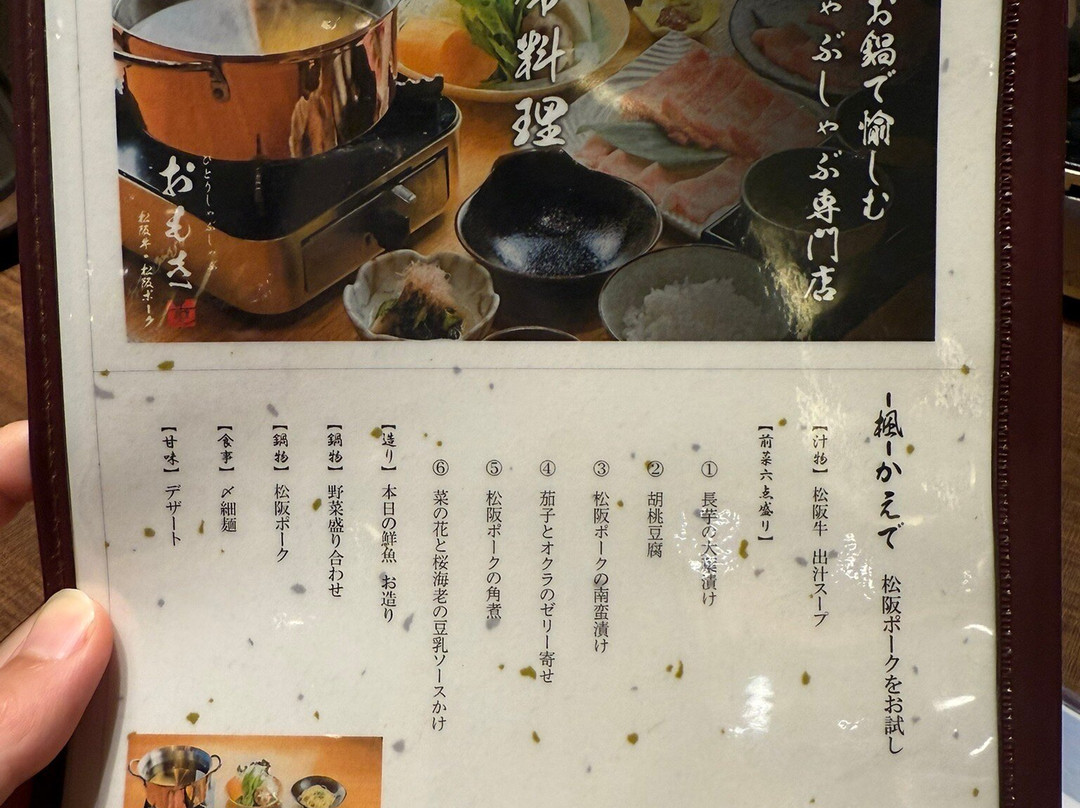 お鍋で愉しむ
ゃぶしゃぶ専門店
料理
ひとりしゃぶしゃぶ
おもき
松阪牛・松阪ポーク
-楓-かえで 松阪ポークをお試し
【汁物】松阪牛 出汁スープ
【前菜六点盛り】
① 長芋の大葉漬け
② 胡桃豆腐
③ 松阪ポークの南蛮漬け
④ 茄子とオクラのゼリー寄せ
⑤ 松阪ポークの角煮
⑥ 菜の花と桜海老の豆乳ソースかけ
【造り】本日の鮮魚 お造り
【鍋物】野菜盛り合わせ
【鍋物】松阪ポーク
【食事】〆細麺
【甘味】デザート